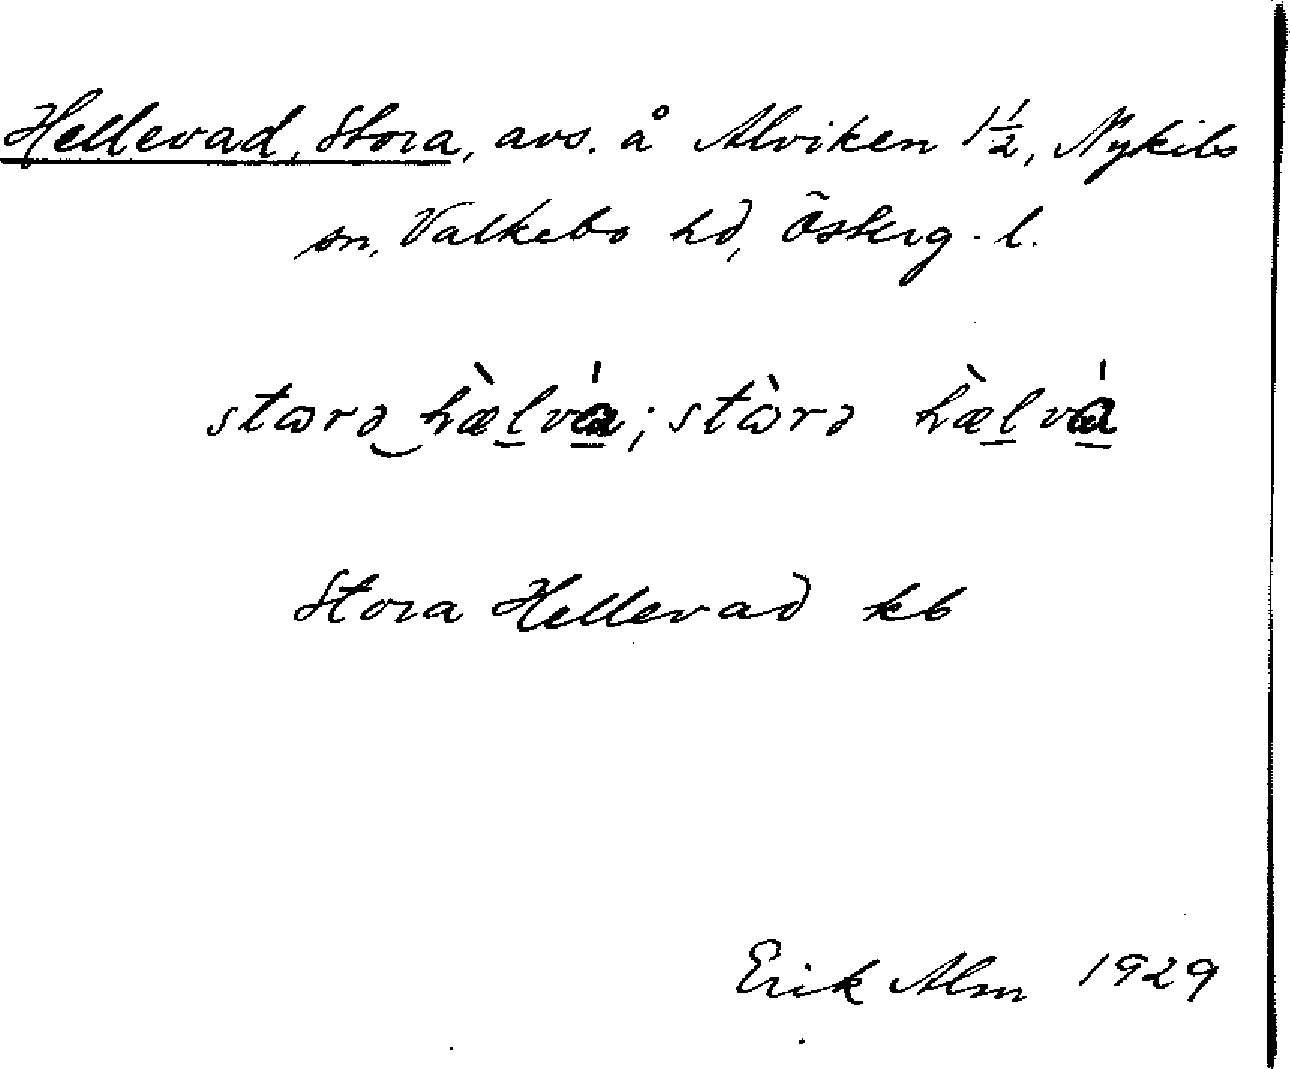 Hellevad, Stora, avs. å Alviken 1 1/2, Nykils
sn, Valkebo hd, Österg. l.
stɷrə hæ̀lvá; stɷ̀rə hæ̀lvá
Stora Hellevad kb
Erik Alm 1929